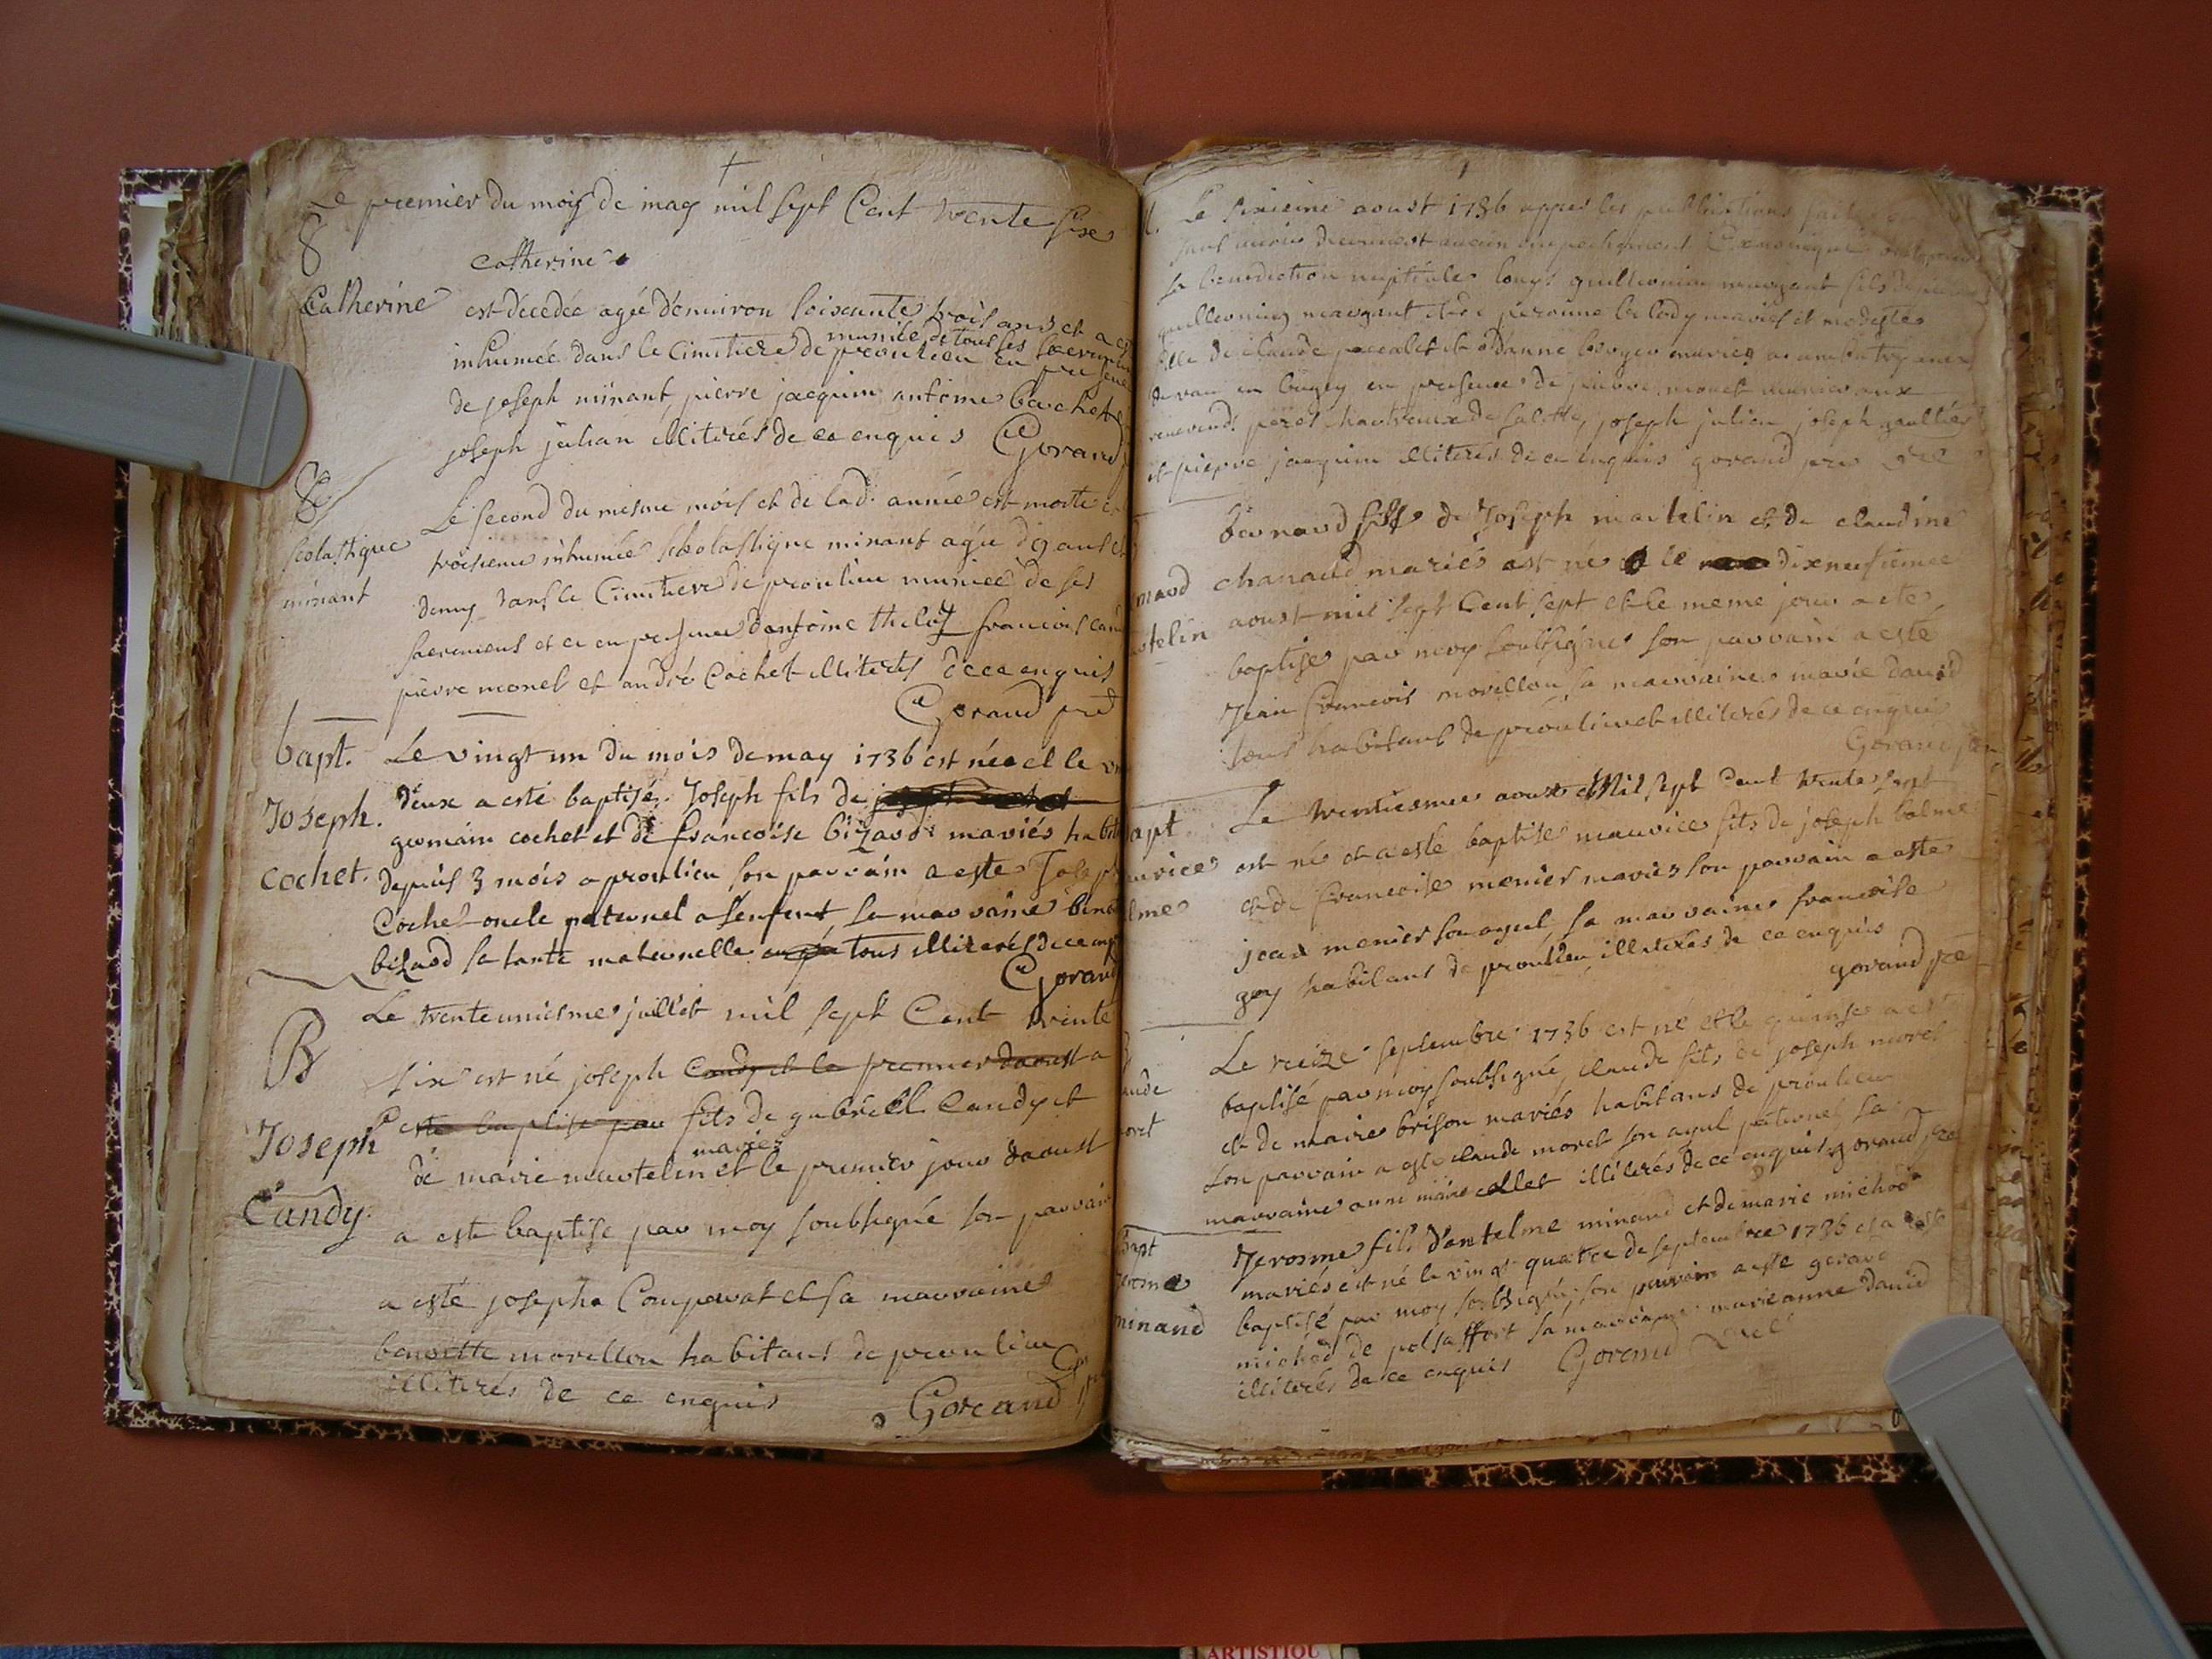 Le premier du mois de may mil sept Cent trente six
Catherine
catherine
est décedée agée d'enuiron soixante trois ans et a es
munite de tous les sacremen
inhumée dans le Cimitiere de proulieu en presen
de joseph minant pierre jacquin antoine Cochet
joseph julian illiterés de ce enquis Gorand
Le second du mesme mois et de lad. année est morte et
scolastique
minant
troisieme inhumée scholastique minant agée d 9 ans et
demy dans le Cimitiere de proulieu muniée de ses
sacremens et ce en presence dantoine theloz francois
pierre monet et andré Cochet illiterés de ce enquis
Gorand pre
bapt.
Joseph.
cochet.
Le vingt un du mois de may 1736 est né et le vin
deux a esté baptisé. Joseph fils de
germain cochet et de francoise bizard mariés habit
depuis 3 mois a proulieu son parrain a este Joseph
Cochet oncle paternel a l'enfent sa marraine bene
bizard sa tante maternelle tous illiterés de ce enq
Gorand
B
Joseph
Candy.
Le trenteuniesme juillet mil sept Cent trente
six est né joseph Candy et le premier daoust a
este baptise par fils de gabriell Candy et
mariez
de marie martelin et le premier jour daoust
a este baptise par moy soubsigné son parrain
a esté joseph Comparat et sa marraine
benoitte morellon habitans de proulieu
illiterés de ce enquis
Gorand
Le sixieme aoust 1736 appres les publications faites
sans avoir decouvert aucun empechement Canonique
la benediction nuptiale louys guilleonin mangant fils de
guilleonin mangant et de peronne mariés et modeste
fille de claude et d'anne berger mariés a ambutrix
en bugey en presence de pierre monet munier aux
reverend. peres chartreux de salette, joseph julien joseph gaultier
et pierre jacquin illiterés de ce enquis gorand pre
nard
rtelin
bernard fils de Joseph martelin et de claudine
chanaud mariés est né le dixneufieme
aoust mil sept Cent sept et le meme jour a ete
baptise par moy soubsigné son parrain a esté
Jean francois morellon sa marraine marie david
tous habitans de proulieu et illiterés de ce enquis
Gorand pre
apt
urice
lme
Le trentiesme aoust Mil sept Cent trente sept
est né et a este baptise maurice fils de joseph balme
et de francoise menier mariez son parrain a este
jean menier son ayeul, sa marraine francoise
gay habitans de proulieu illiterés de ce enquis
gorand pre
aude
oret
Le treize septembre 1736 est né et le quinse a est
baptisé par moy soubsigné, claude fils de joseph moret
et de marie brison mariés habitans de proulieu
son parrain a este claude moret son ayul paternel sa
marraine anne marie collet illiterés de ce enquis. gorand pre
bapt
erosme
minand
Jerosme fils d'antelme minand et de marie michod
mariés est né le vingt quatre de septembre 1736 et a este
baptisé par moy soubsigné, son parrain a este gerard
michod de polsaffort sa marraine marieanne david
illiterés de ce enquis Gorand
ARTISTIQU